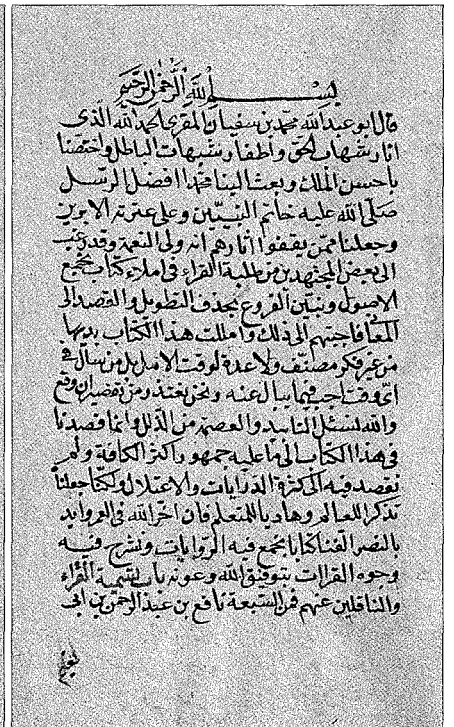 بسم الله الرحمن الرحيم
قال ابو عبد الله محمد بن سفيان المقري الحمد لله الذي
انار شهاب الحق واطفا شبهات الباطل واختصنا
باحسن الملك وبعث الينا محمدا افضل الرسل
صلى الله عليه خاتم النبيين وعلى عترته الابرين
وجعلنا ممن يقفوا اثارهم انه ولي النعمة وقد رغب
الى بعض المجتهدين من طلبة القراء في املاء كتاب يجمع
الاصول ويبين الفروع بحذف التطويل والقصد الى
المعاني فاجبتهم الى ذلك واملت هذا الكتاب
من غير فكر مصنف ولا عدة لوقت الامل بل من سال في
اي وقت احب فيما يسال عنه ونحن نعتذر من تقصير ان وقع
والله نسئل التاييد والعصم من الذلل وانما قصدنا
في هذا الكتاب الى ما عليه جمهور اكثر الكافة ولم
نقصد فيه الى كثرة الروايات والاعتلال ولكنا جعلنا
تذكرا للعالم وهاديا للمتعلم فان اخر الله في
بالنصر الفنا كتابا يجمع فيه الروايات ونشرح فيه
وجوه القراات بتوفيق الله وعونه باب تسمية القراء
والناقلين عنهم فمن السبعة نافع بن عبد الرحمن بن ابي
نعيم